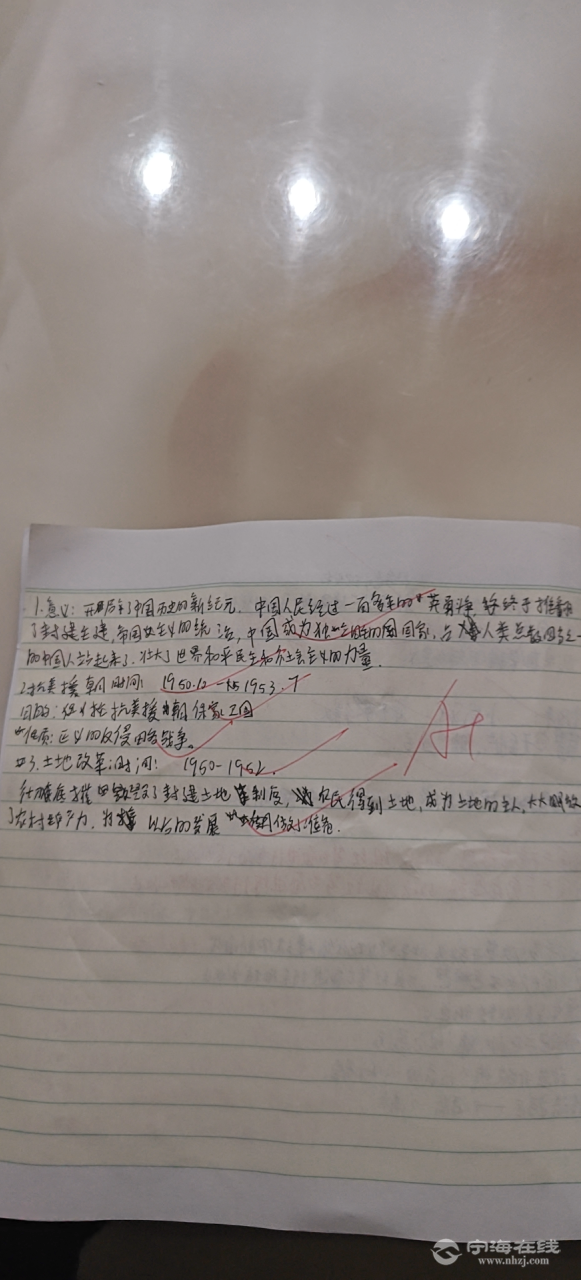 1.意义:开启了中国历史的新纪元.中国人民经过一百多年的英勇 终于推翻
了封建 帝国主义的统治,中国成为独立自主的国家,占人类总数四分之一
的中国人站起来了.壮大了世界和平民主和社会主义的力量.
2.抗美援朝时间: 1950.10 1953.7
目的: 抗美援朝 保家卫国
性质:正义的反侵略战争。
3.土地改革时间: 1950-1952.
封建土地制度, 农民得到土地,成为土地的主人,大大解放
了农村生产力,为 以后的发展 准备.
A+
宁海在线
www.nhzj.com